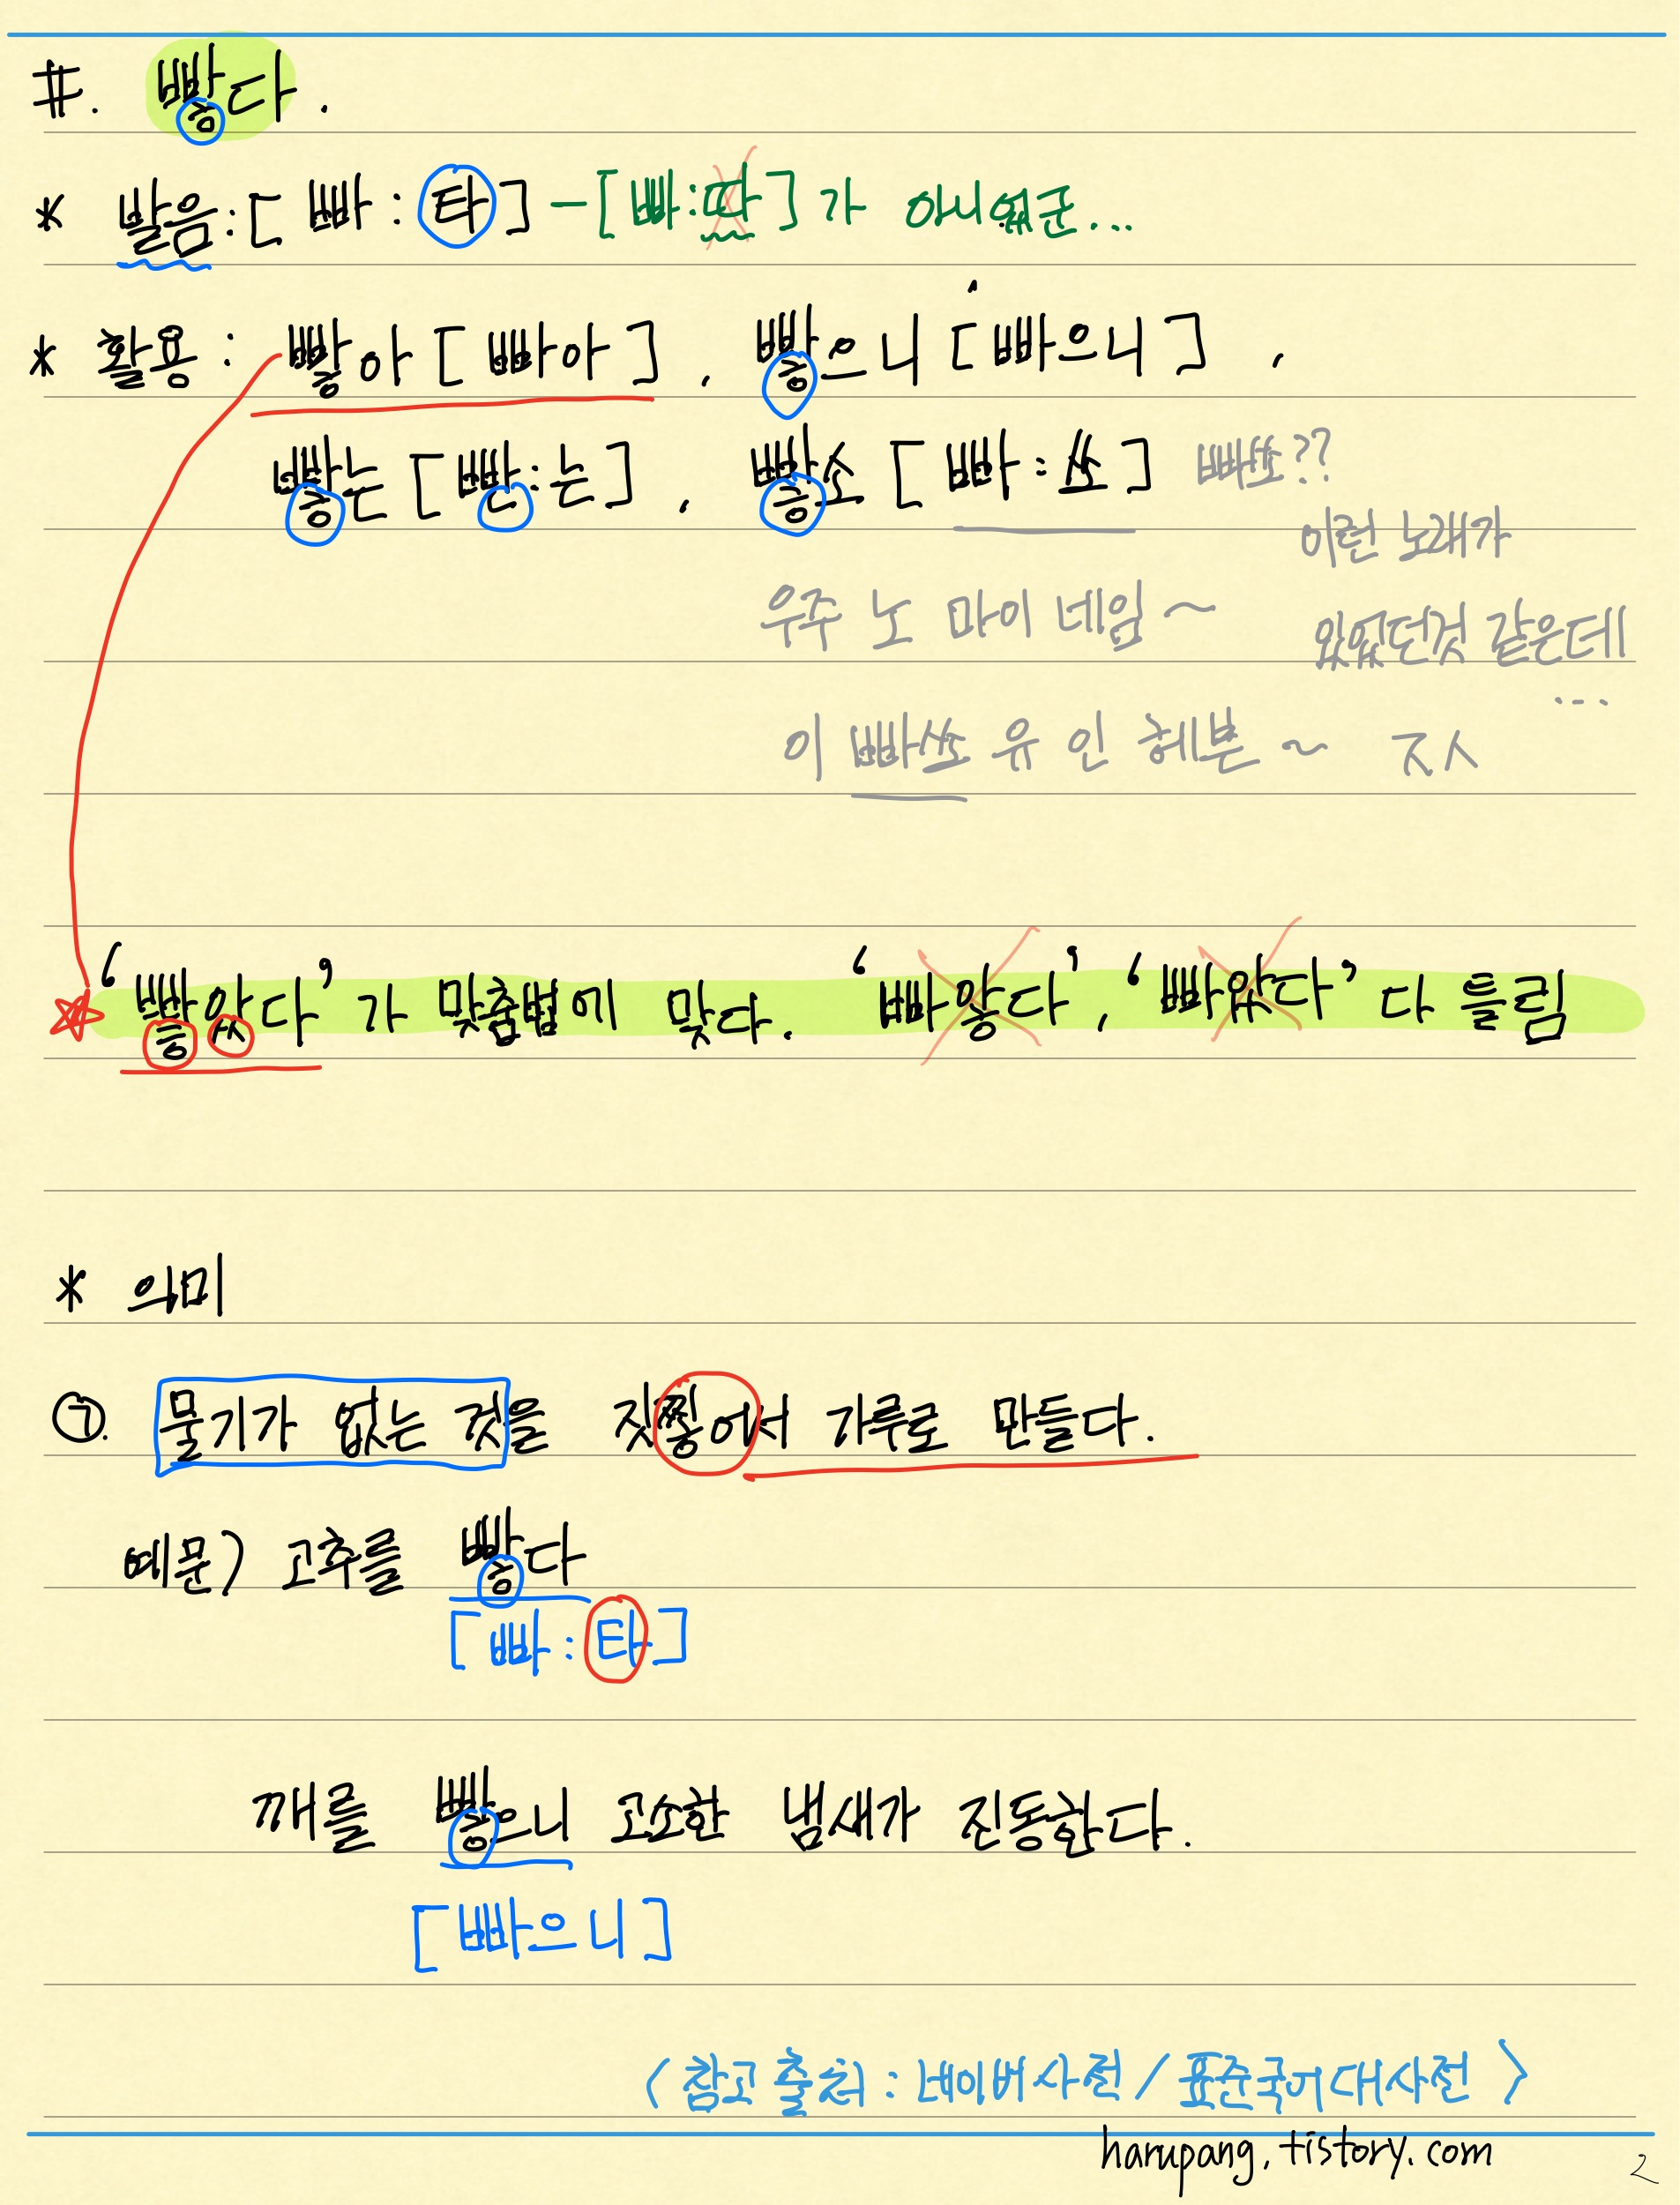 #. 빻다.
* 발음:[빠:타] - [빠:따]가 아니었군...
* 활용: 빻아[빠아], 빻으니[빠으니],
빻는[빤:는], 빻소[빠:쏘] 빠쏘??
이런 노래가
우주 노 마이 네임~ 있었던것 같은데
...
이 빠쏘 유 인 헤븐~ ㅈㅅ
'빻았다'가 맞춤법에 맞다. '빠앟다', '빠았다' 다 틀림
* 의미
①. 물기가 없는 것을 짓찧어서 가루로 만들다.
예문) 고추를 빻다
[빠:타]
깨를 빻으니 고소한 냄새가 진동한다.
[빠으니]
<참고 출처: 네이버사전/표준국어대사전>
harupang.tistory.com
2